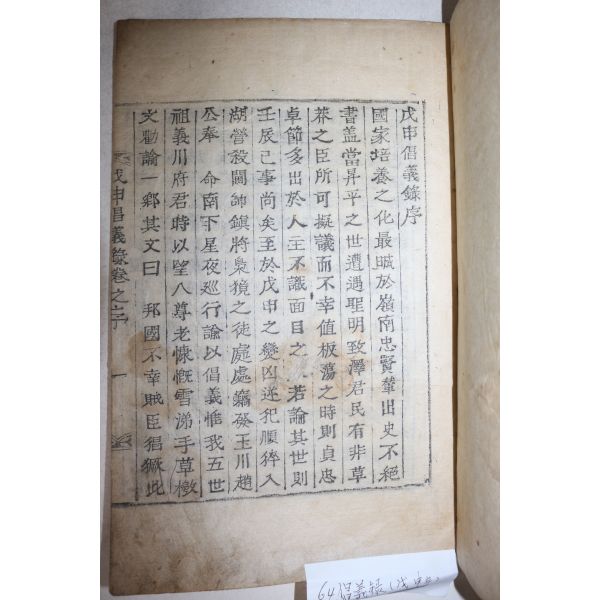 戊申倡義錄序
國家培養之化最晠於嶺南忠賢輩出史不絕
書盖當昇平之世遭遇聖明致澤君民有非草
莽之臣所可擬議而不幸值板蕩之時則貞忠
卓節多出於人主不識面目之 若論其世則
壬辰已事尚矣至於戊申之變凶逆犯順猝入
湖營殺閫帥鎮將梟獍之徒處處蜂發玉川趙
公奉 命南下星夜巡行諭以倡義惟我五世
祖義川府君時以望八尊老慷慨雪涕手草檄
文勸諭一鄉其文曰 邦國不幸賊臣猖獗此
戊申倡義錄卷之序 一
64 倡義錄(戊申)